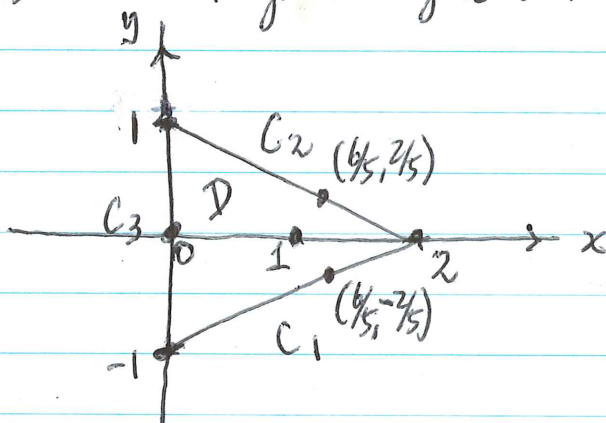 y
1
C2
(6/5, 2/5)
D
C3
0
1
2
x
(6/5, -2/5)
C1
-1